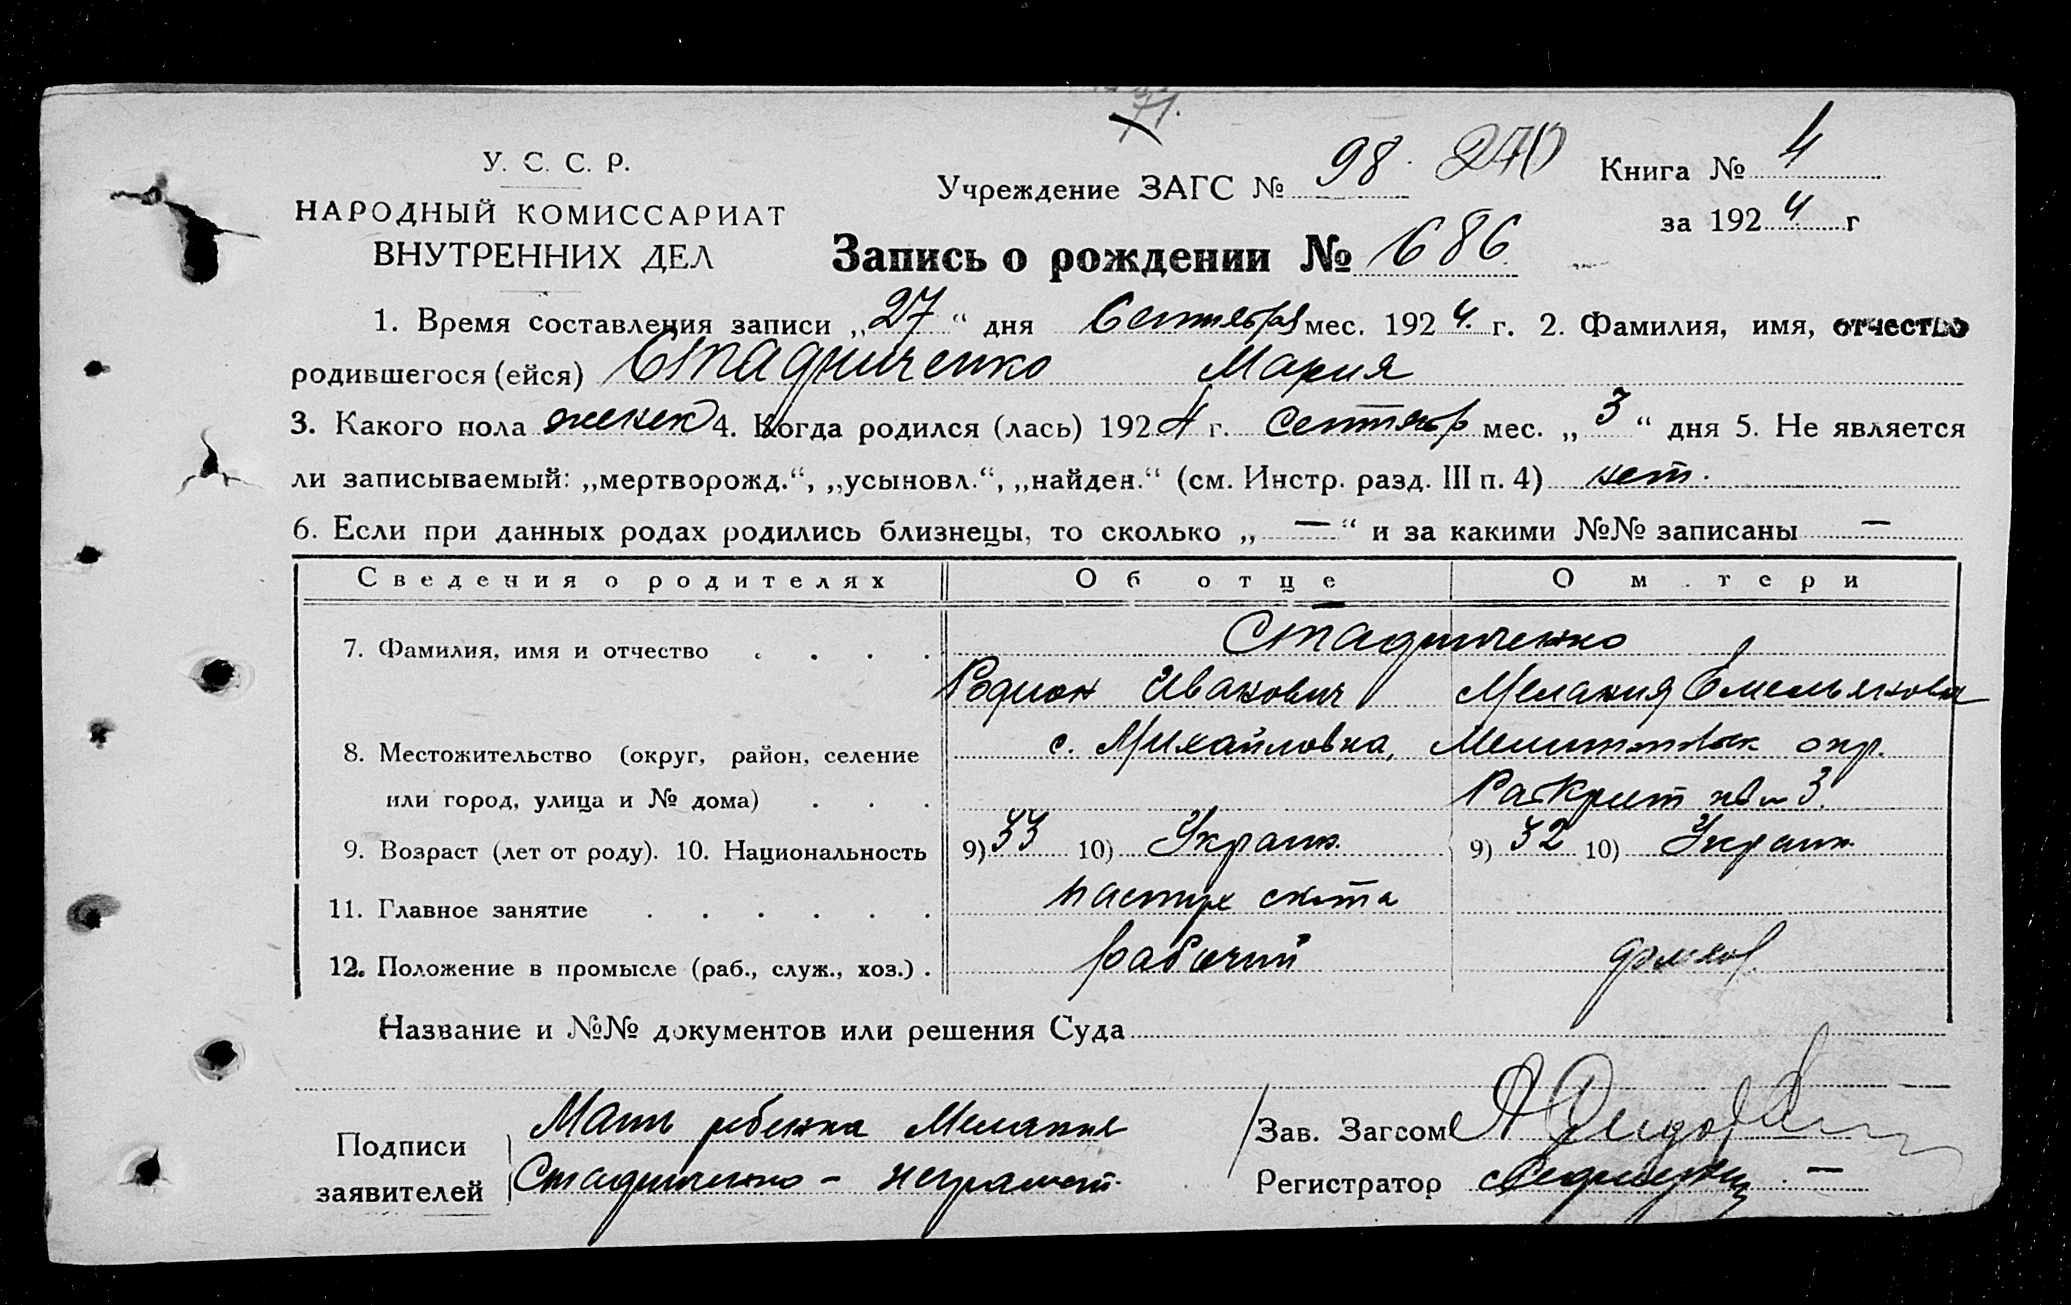 71.
У. С. С. Р.
НАРОДНЫЙ КОМИССАРИАТ
ВНУТРЕННИХ ДЕЛ
Учреждение ЗАГС № 98 270 Книга № 4
за 1924 г
Запись о рождении № 686
1. Время составления записи „27“ дня Сентября мес. 1924. г. 2. Фамилия, имя, отчество
родившегося (ейся) Стадниченко Мария
3. Какого пола женск 4. Когда родился (лась) 1924 г. Сентябр мес. „3“ дня 5. Не является
ли записываемый: „мертворожд.“, „усыновл.“, „найден.“ (см. Инстр. разд. III п. 4) нет.
6. Если при данных родах родились близнецы, то сколько „—“ и за какими №№ записаны —
Сведения о родителях Об отце О м тери
7. Фамилия, имя и отчество . . . . Стадниченко
Родион Иванович Мелания Емельянова
8. Местожительство (округ, район, селение с. Михайловка, окр.
или город, улица и № дома) . . . 3.
9. Возраст (лет от роду). 10. Национальность 9) 33 10) Украин. 9) 32 10) Украин.
11. Главное занятие . . . . . . пастух скота
12. Положение в промысле (раб., служ., хоз.) . рабочий домхоз.
Название и №№ документов или решения Суда
Подписи заявителей Мать ребенка Мелания
Стадниченко – неграмот.
Зав. Загсом
Регистратор